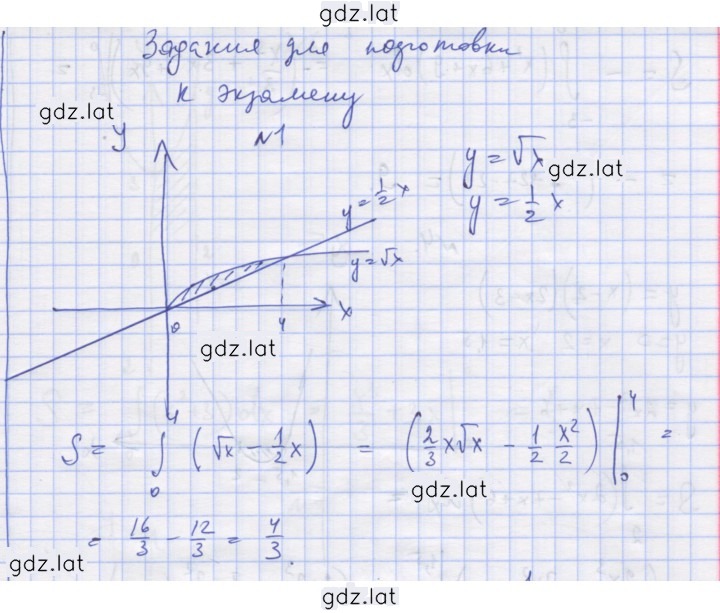 gdz.lat
Задания для подготовки
gdz.lat
к экзамену
y
№1
y = √x
gdz.lat
y = 1/2 x
y = 1/2 x
y = √x
0
4
x
gdz.lat
S = ∫₀⁴ (√x − 1/2 x) = (2/3 x√x − 1/2 x²/2) |₀⁴ =
gdz.lat
= 16/3 − 12/3 = 4/3.
gdz.lat
gdz.lat